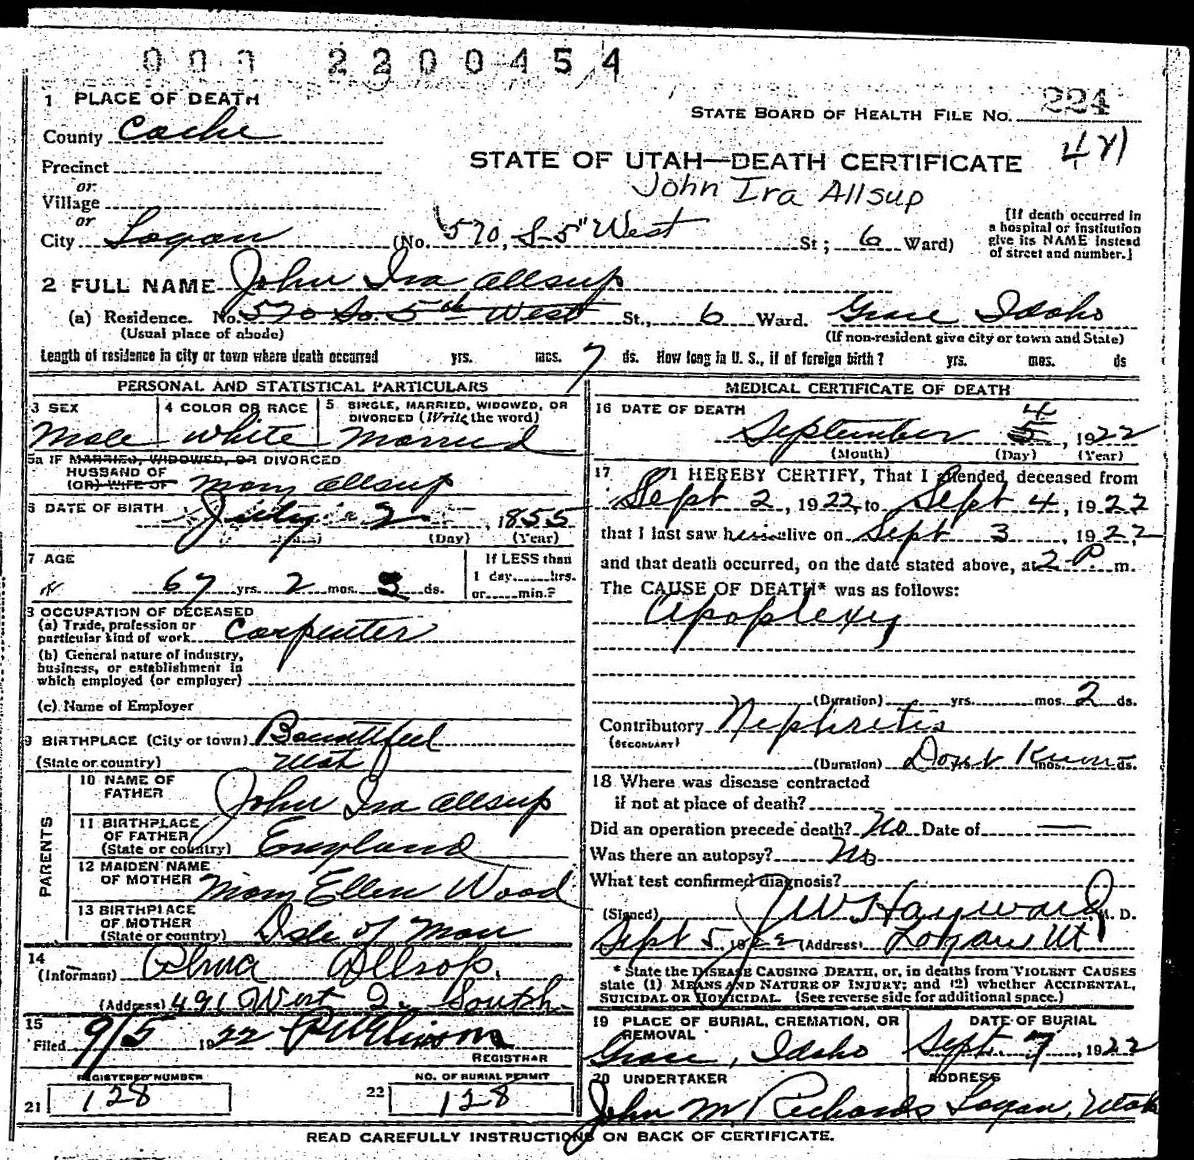 003 2200454
1 PLACE OF DEATH
STATE BOARD OF HEALTH FILE NO. 224
County Cache
421
Precinct
STATE OF UTAH—DEATH CERTIFICATE
or
John Ira Allsup
Village
or
City Logan (No. 570, S-5" West St; 6 Ward)
[If death occurred in
a hospital or institution
give its NAME instead
of street and number.]
2 FULL NAME John Ira Allsup
(a) Residence. No. 570 So. 5th West St., 6 Ward. Grace Idaho
(Usual place of abode) (If non-resident give city or town and State)
Length of residence in city or town where death occurred yrs. mos. 7 ds. How long in U. S., if of foreign birth? yrs. mos. ds
PERSONAL AND STATISTICAL PARTICULARS
3 SEX 4 COLOR OR RACE 5 SINGLE, MARRIED, WIDOWED, OR
DIVORCED (Write the word)
Male White Married
5a IF MARRIED, WIDOWED, OR DIVORCED
HUSBAND OF
(OR) WIFE OF Mary Allsup
6 DATE OF BIRTH July 2, 1855
(Day) (Year)
7 AGE If LESS than
67 yrs. 2 mos. 3 ds. 1 day......hrs.
or......min.?
8 OCCUPATION OF DECEASED
(a) Trade, profession or
particular kind of work Carpenter
(b) General nature of industry,
business, or establishment in
which employed (or employer)
(c) Name of Employer
9 BIRTHPLACE (City or town) Bountiful
(State or country) Utah
PARENTS
10 NAME OF
FATHER John Ira Allsup
11 BIRTHPLACE
OF FATHER
(State or country) England
12 MAIDEN NAME
OF MOTHER Mary Ellen Wood
13 BIRTHPLACE
OF MOTHER
(State or country) Isle of Man
14
(Informant) Allsop.
(Address) 491 West 2. South
15
Filed 9/5 1922
REGISTRAR
REGISTERED NUMBER NO. OF BURIAL PERMIT
21 128 22 128
MEDICAL CERTIFICATE OF DEATH
16 DATE OF DEATH 4
September 5, 1922
(Month) (Day) (Year)
17 I HEREBY CERTIFY, That I attended deceased from
Sept 2, 1922, to Sept 4, 1922
that I last saw him alive on Sept 3, 1922,
and that death occurred, on the date stated above, at 2 P. m.
The CAUSE OF DEATH* was as follows:
Apoplexy
(Duration) yrs. mos. 2 ds.
Contributory Nephritis
(SECONDARY)
(Duration) Dont Know mos. ds.
18 Where was disease contracted
if not at place of death?
Did an operation precede death? No Date of —
Was there an autopsy? No
What test confirmed diagnosis?
(Signed) J W Hayward M. D.
Sept 5, 1922 (Address) Logan Ut
* State the DISEASE CAUSING DEATH, or, in deaths from VIOLENT CAUSES
state (1) MEANS AND NATURE OF INJURY; and (2) whether ACCIDENTAL,
SUICIDAL OR HOMICIDAL. (See reverse side for additional space.)
19 PLACE OF BURIAL, CREMATION, OR
REMOVAL DATE OF BURIAL
Grace, Idaho Sept. 7, 1922
20 UNDERTAKER ADDRESS
John M. Richards Logan, Utah
READ CAREFULLY INSTRUCTIONS ON BACK OF CERTIFICATE.